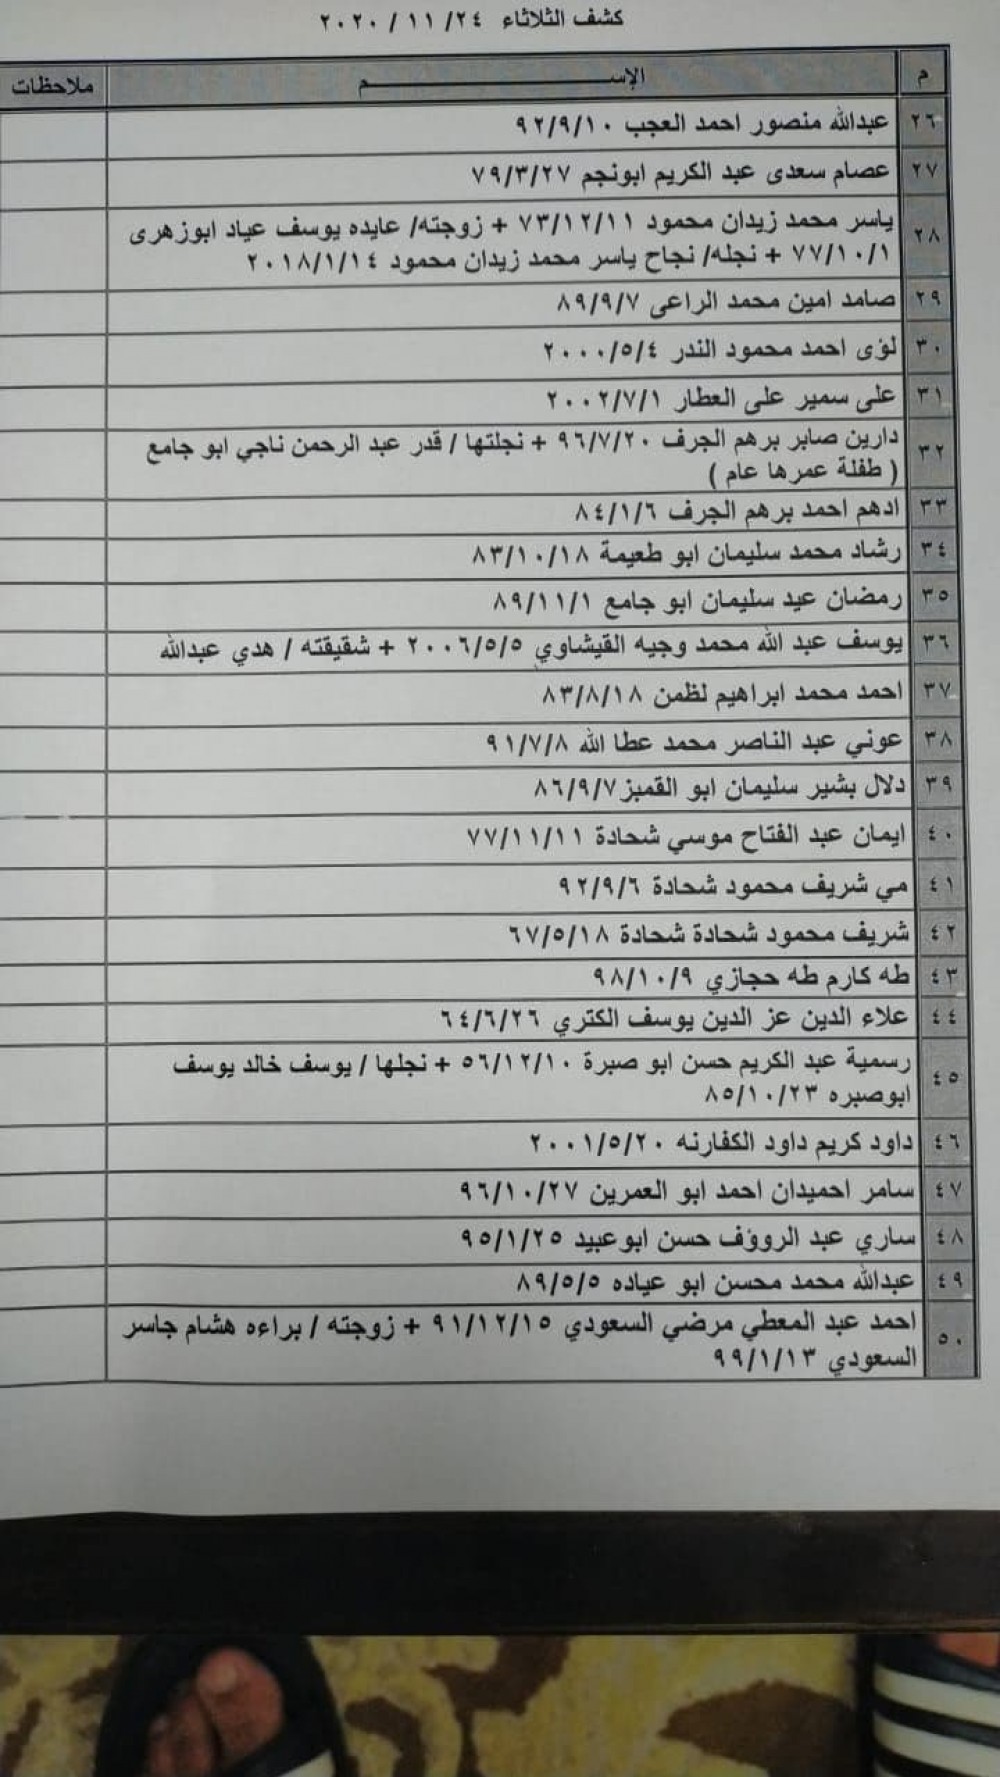 كشف الثلاثاء ٢٤ / ١١ / ٢٠٢٠
م الإســـــــــم ملاحظات
٢٦ عبدالله منصور احمد العجب ٩٢/٩/١٠
٢٧ عصام سعدى عبد الكريم ابونجم ٧٩/٣/٢٧
٢٨ ياسر محمد زيدان محمود ٧٣/١٢/١١ + زوجته/ عايده يوسف عياد ابوزهرى
٧٧/١٠/١ + نجله/ نجاح ياسر محمد زيدان محمود ٢٠١٨/١/١٤
٢٩ صامد امين محمد الراعى ٨٩/٩/٧
٣٠ لؤى احمد محمود الندر ٢٠٠٠/٥/٤
٣١ على سمير على العطار ٢٠٠٢/٧/١
٣٢ دارين صابر برهم الجرف ٩٦/٧/٢٠ + نجلتها / قدر عبد الرحمن ناجي ابو جامع
( طفلة عمرها عام )
٣٣ ادهم احمد برهم الجرف ٨٤/١/٦
٣٤ رشاد محمد سليمان ابو طعيمة ٨٣/١٠/١٨
٣٥ رمضان عيد سليمان ابو جامع ٨٩/١١/١
٣٦ يوسف عبد الله محمد وجيه القيشاوي ٢٠٠٦/٥/٥ + شقيقته / هدي عبدالله
٣٧ احمد محمد ابراهيم لظمن ٨٣/٨/١٨
٣٨ عوني عبد الناصر محمد عطا الله ٩١/٧/٨
٣٩ دلال بشير سليمان ابو القمبز ٨٦/٩/٧
٤٠ ايمان عبد الفتاح موسي شحادة ٧٧/١١/١١
٤١ مي شريف محمود شحادة ٩٢/٩/٦
٤٢ شريف محمود شحادة شحادة ٦٧/٥/١٨
٤٣ طه كارم طه حجازي ٩٨/١٠/٩
٤٤ علاء الدين عز الدين يوسف الكتري ٦٤/٦/٢٦
٤٥ رسمية عبد الكريم حسن ابو صبرة ٥٦/١٢/١٠ + نجلها / يوسف خالد يوسف
ابوصبره ٨٥/١٠/٢٣
٤٦ داود كريم داود الكفارنه ٢٠٠١/٥/٢٠
٤٧ سامر احميدان احمد ابو العمرين ٩٦/١٠/٢٧
٤٨ ساري عبد الرووف حسن ابوعبيد ٩٥/١/٢٥
٤٩ عبدالله محمد محسن ابو عياده ٨٩/٥/٥
٥٠ احمد عبد المعطي مرضي السعودي ٩١/١٢/١٥ + زوجته / براءه هشام جاسر
السعودي ٩٩/١/١٣